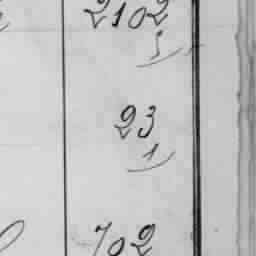 2102
23
1
702